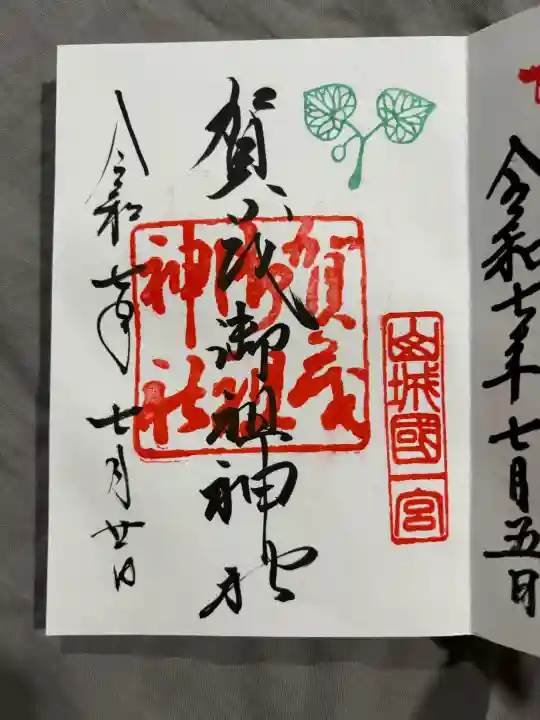 令和七年七月五日
山城國一宮
賀茂御祖神社
賀茂御祖神社
令和七年七月廿日